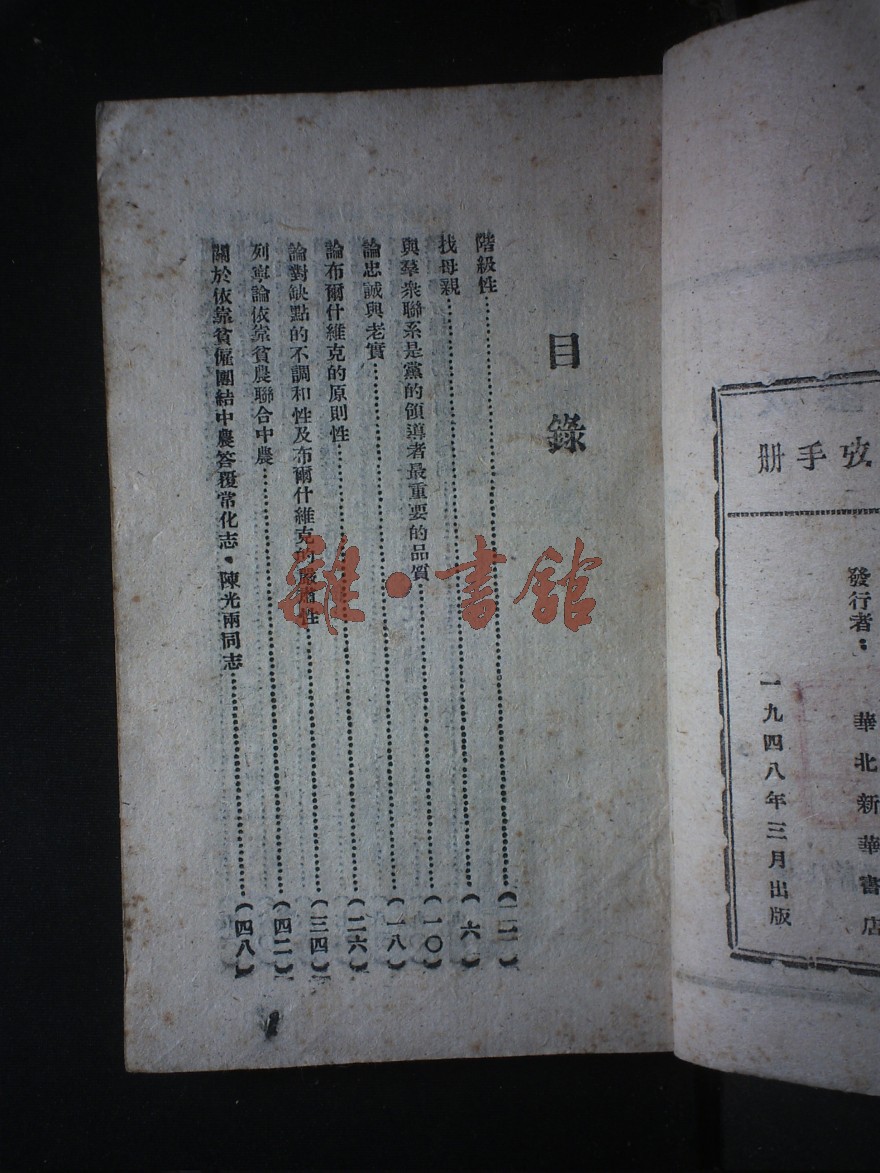 目錄
階級性……(一)
找母親……(六)
與羣衆聯系是黨的領導者最重要的品質……(一〇)
論忠誠與老實……(一八)
論布爾什維克的原則性……(二六)
論對缺點的不調和性及布爾什維克的嚴肅性……(三四)
列寧論依靠貧農聯合中農……(四二)
關於依靠貧僱團結中農答覆常化志·陳光兩同志……(四八)
手册
發行者:華北新華書店
一九四八年三月出版
雜·書館